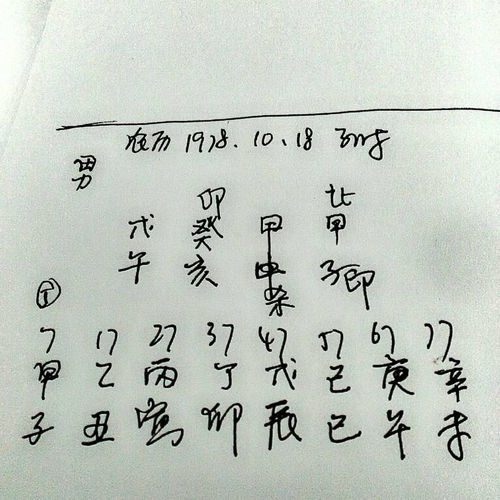 农历 1978.10.18 子时
男
印 比
戊 癸 甲 甲
午 亥 申 子印
杀
7 17 27 37 47 57 67 77
甲 乙 丙 丁 戊 己 庚 辛
子 丑 寅 卯 辰 巳 午 未